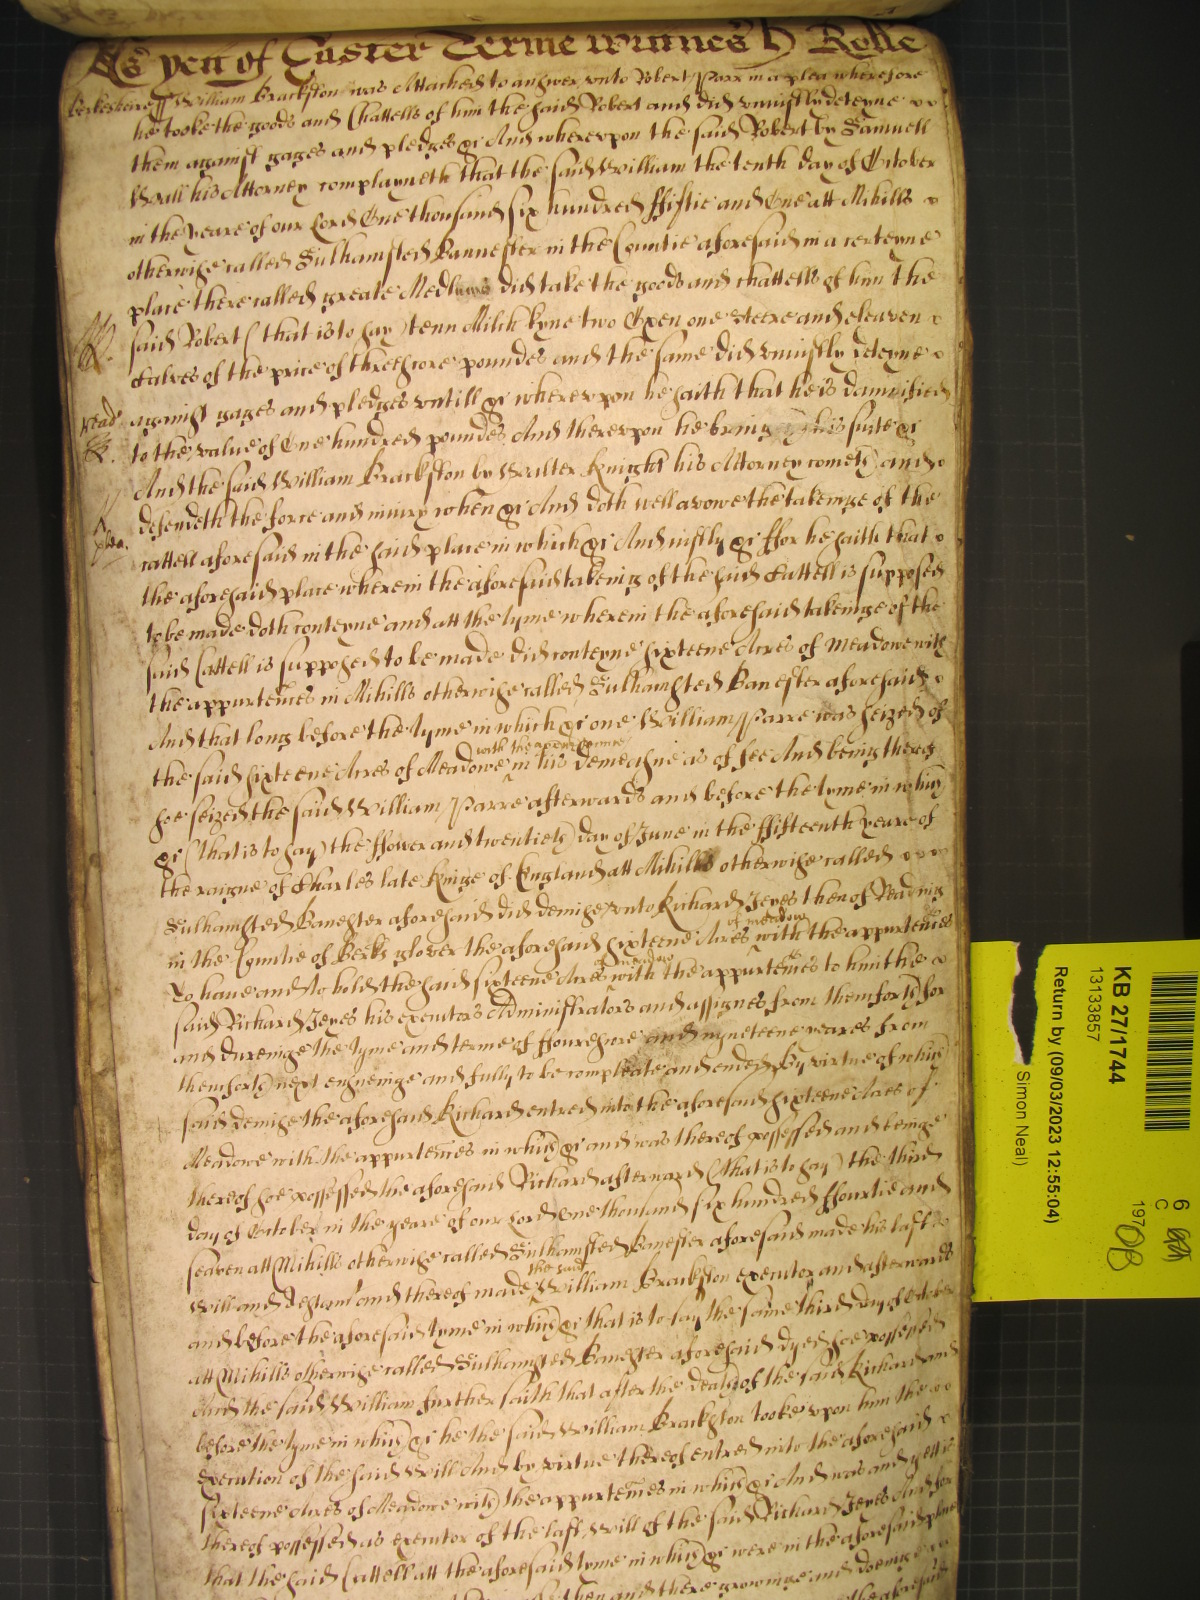 As yett of Easter Terme witnes H Rolle
Berkesheire ss William Brackston was Attached to answer unto Robert Parr in a plea wherefore
he tooke the goods and Chattells of him the said Robert and did uniustly deteyne
them against gages and pledges &c And whereupon the said Robert by Samuell
Wall his Attorney complayneth that the said William the tenth day of October
in the yeare of our Lord One thousand six hundred ffiftie and One att Mihills
otherwise called Sulhamsted Bannester in the Countie aforesaid in a certeyne
place there called greate Medlows did take the goods and chattells of him the
said Robert (that is to say) tenn Milch kyne two Oxen one steere and eleaven
Calves of the price of threescore poundes and the same did uniustly deteyne
against gages and pledges untill &c whereupon he saith that he is damnified
to the value of One hundred poundes And thereupon he bringeth his suite &c
And the said William Brackston by Walter Knight his Attorney cometh and
defendeth the force and iniury when &c And doth well avowe the takeinge of the
cattell aforesaid in the said place in which &c And iustly &c ffor he saith that
plea.
the aforesaid place wherein the aforesaid takeing of the said Cattell is supposed
to be made doth conteyne and att the tyme wherein the aforesaid takeinge of the
said Cattell is supposed to be made did conteyne sixteene Acres of meadowe with
the appurtences in Mihills otherwise called Sulhamsted Banester aforesaid
And that long before the tyme in which &c one William Parre was seized of
the said sixteene Acres of Meadowe with the appurtennces in his demeasne as of fee And being thereof
soe seized the said William Parre afterwards and before the tyme in which
&c (that is to say) the ffower and twentieth day of June in the ffifteenth yeare of
the raigne of Charles late Kinge of England att Mihills otherwise called
Sulhamsted Banester aforesaid did demise unto Richard Jeyes then of Reading
in the Countie of Berks glover the aforesaid sixteene Acres of meadow with the appurtences
To have and to hold the said sixteene Acres of meadow with the appurtences to him the
said Richard Jeyes his executors Administrators and assignes from thenceforth for
and dureinge the tyme and terme of ffourescore and nyneteene yeares from
thenceforth next ensueinge and fully to be compleate and ended By virtue of which
said demise the aforesaid Richard entred into the aforesaid sixteene Acres of
Meadowe with the appurtences in which &c and was thereof possessed and beinge
thereof soe possessed the aforesaid Richard afterward (that is to say) the third
day of October in the yeare of our Lord One thousand six hundred ffourtie and
seaven att Mihills otherwise called Sulhamsted Banester aforesaid made his last
Will and Testamt and thereof made the said William Brackston executor and afterwards
and before the aforesaid tyme in which &c that is to say the same third day of October
att Mihills otherwise called Sulhamsted Banester aforesaid dyed soe possessed
And the said William further saith that after the death of the said Richard and
before the tyme in which &c he the said William Brackston tooke upon him the
Execution of the said Will And by virtue thereof entred into the aforesaid
sixteene Acres of Meadowe with the appurtences in which &c And was and yett is
thereof possessed as executor of the last Will of the said Richard Jeyes And for
that the said Cattell att the aforesaid tyme in which &c were in the aforesaid place
then and there growinge and doeinge
KB 27/1744
13133857
Return by (09/03/2023 12:55:04)
Simon Neal)
6
C
197